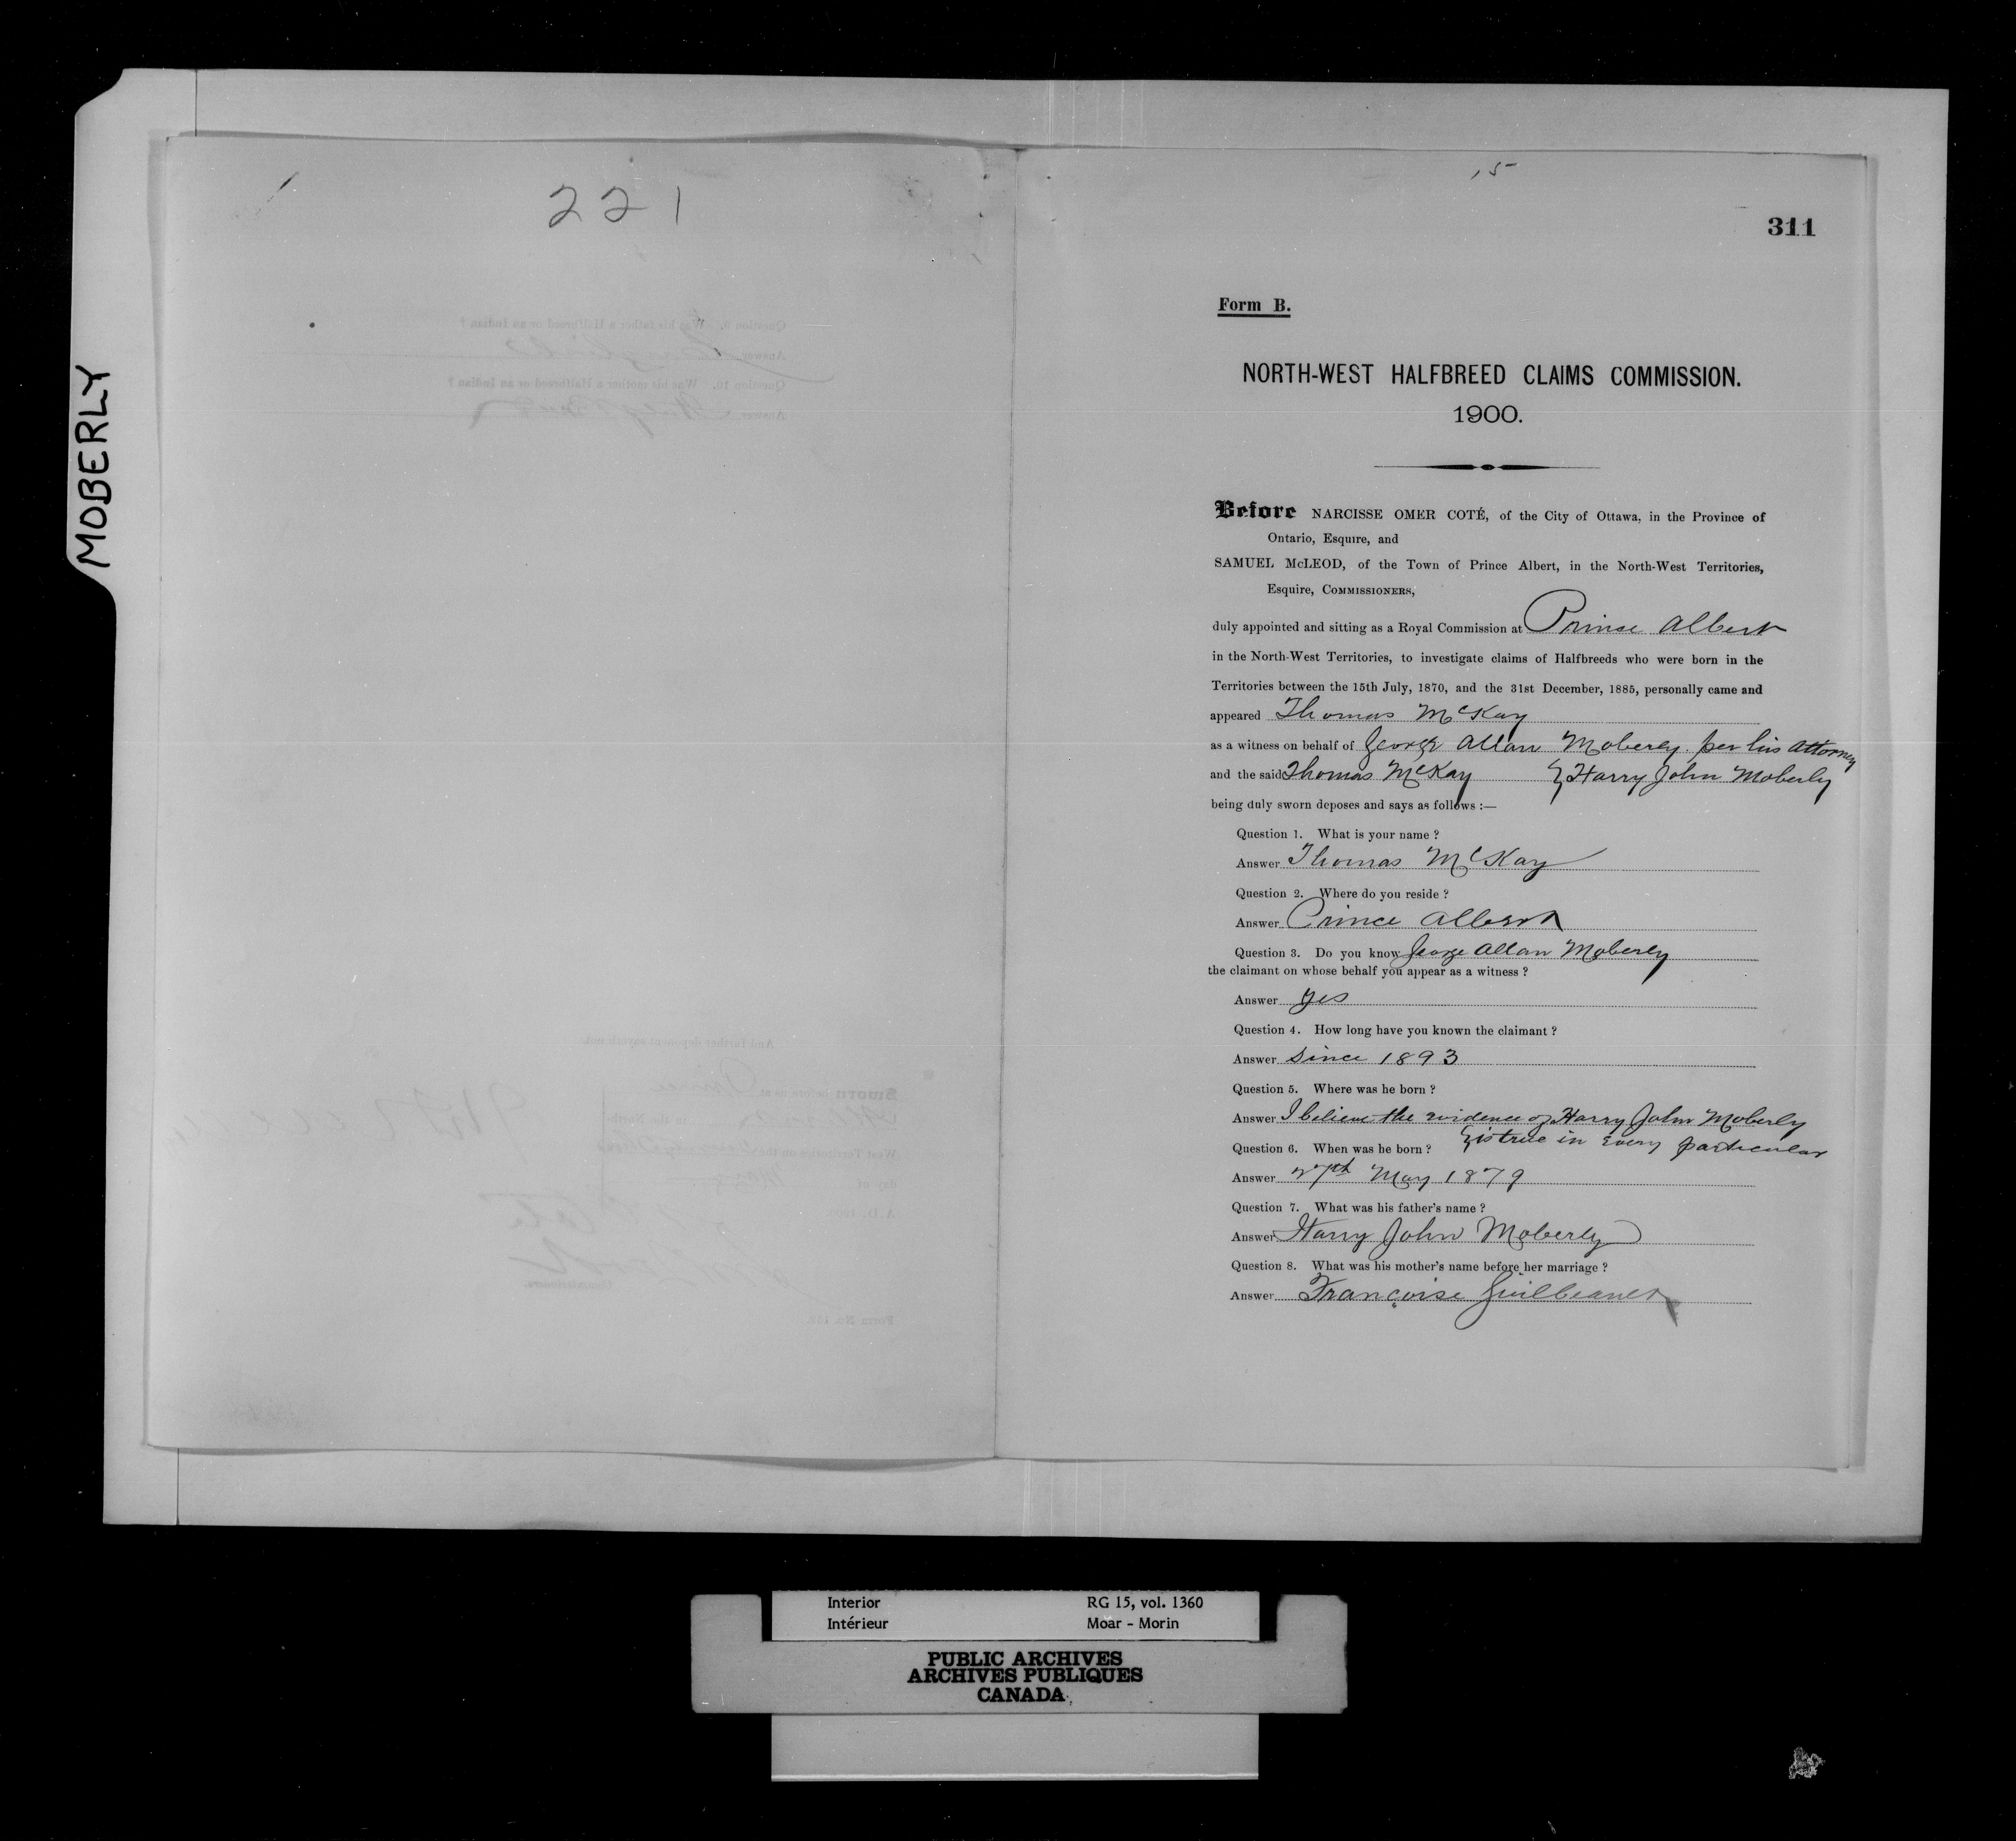 MOBERLY
221
15
311
Form B.
NORTH-WEST HALFBREED CLAIMS COMMISSION.
1900.
Before NARCISSE OMER COTÉ, of the City of Ottawa, in the Province of
Ontario, Esquire, and
SAMUEL McLEOD, of the Town of Prince Albert, in the North-West Territories,
Esquire, COMMISSIONERS,
duly appointed and sitting as a Royal Commission at Prince Albert
in the North-West Territories, to investigate claims of Halfbreeds who were born in the
Territories between the 15th July, 1870, and the 31st December, 1885, personally came and
appeared Thomas McKay
as a witness on behalf of George Allan Moberly per his Attorney
and the said Thomas McKay } Harry John Moberly
being duly sworn deposes and says as follows :—
Question 1. What is your name ?
Answer Thomas McKay
Question 2. Where do you reside ?
Answer Prince Albert
Question 3. Do you know George Allan Moberly
the claimant on whose behalf you appear as a witness ?
Answer yes
Question 4. How long have you known the claimant ?
Answer Since 1893
Question 5. Where was he born ?
Answer I believe the evidence of Harry John Moberly
} is true in every particular
Question 6. When was he born ?
Answer 27th May 1879
Question 7. What was his father's name ?
Answer Harry John Moberly
Question 8. What was his mother's name before her marriage ?
Answer Françoise
Interior
Intérieur
RG 15, vol. 1360
Moar - Morin
PUBLIC ARCHIVES
ARCHIVES PUBLIQUES
CANADA